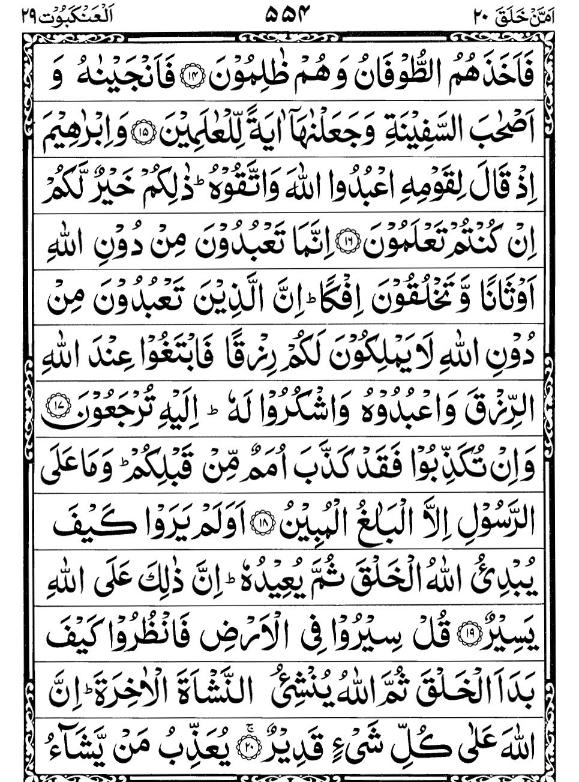 اَمَّنْ خَلَقَ ٢٠ ۵۵۴ اَلْعَنْكَبُوْت ٢٩
فَاَخَذَهُمُ الطُّوْفَانُ وَهُمْ ظٰلِمُوْنَ ﴿۱۴﴾ فَاَنْجَيْنٰهُ وَ
اَصْحٰبَ السَّفِيْنَةِ وَجَعَلْنٰهَاۤ اٰيَةً لِّلْعٰلَمِيْنَ ﴿۱۵﴾ وَاِبْرٰهِيْمَ
اِذْ قَالَ لِقَوْمِهِ اعْبُدُوا اللّٰهَ وَاتَّقُوْهُ ؕ ذٰلِكُمْ خَيْرٌ لَّكُمْ
اِنْ كُنْتُمْ تَعْلَمُوْنَ ﴿۱۶﴾ اِنَّمَا تَعْبُدُوْنَ مِنْ دُوْنِ اللّٰهِ
اَوْثَانًا وَّ تَخْلُقُوْنَ اِفْكًا ؕ اِنَّ الَّذِيْنَ تَعْبُدُوْنَ مِنْ
دُوْنِ اللّٰهِ لَا يَمْلِكُوْنَ لَكُمْ رِزْقًا فَابْتَغُوْا عِنْدَ اللّٰهِ
الرِّزْقَ وَاعْبُدُوْهُ وَاشْكُرُوْا لَهٗ ؕ اِلَيْهِ تُرْجَعُوْنَ ﴿۱۷﴾
وَاِنْ تُكَذِّبُوْا فَقَدْ كَذَّبَ اُمَمٌ مِّنْ قَبْلِكُمْ ؕ وَمَا عَلَى
الرَّسُوْلِ اِلَّا الْبَلٰغُ الْمُبِيْنُ ﴿۱۸﴾ اَوَلَمْ يَرَوْا كَيْفَ
يُبْدِئُ اللّٰهُ الْخَلْقَ ثُمَّ يُعِيْدُهٗ ؕ اِنَّ ذٰلِكَ عَلَى اللّٰهِ
يَسِيْرٌ ﴿۱۹﴾ قُلْ سِيْرُوْا فِى الْاَرْضِ فَانْظُرُوْا كَيْفَ
بَدَاَ الْخَلْقَ ثُمَّ اللّٰهُ يُنْشِئُ النَّشْاَةَ الْاٰخِرَةَ ؕ اِنَّ
اللّٰهَ عَلٰى كُلِّ شَىْءٍ قَدِيْرٌ ۚ ﴿۲۰﴾ يُعَذِّبُ مَنْ يَّشَآءُ